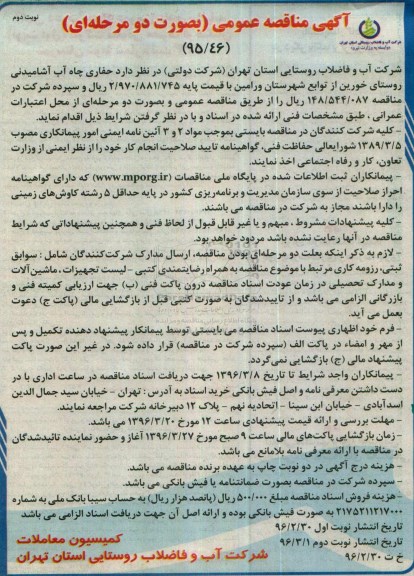 نوبت دوم
آگهی مناقصه عمومی (بصورت دو مرحله‌ای)
(۹۵/۴۶)
شرکت آب و فاضلاب روستایی استان تهران
شرکت آب و فاضلاب روستایی استان تهران (شرکت دولتی) در نظر دارد حفاری چاه آب آشامیدنی
روستای خورین از توابع شهرستان ورامین با قیمت پایه ۲/۹۷۰/۸۸۱/۷۴۵ ریال و سپرده شرکت در
مناقصه ۱۴۸/۵۴۴/۰۸۷ ریال را از طریق مناقصه عمومی و بصورت دو مرحله‌ای از محل اعتبارات
عمرانی ، طبق مشخصات فنی ارائه شده در اسناد و با در نظر گرفتن شرایط ذیل اقدام نماید.
- کلیه شرکت کنندگان در مناقصه بایستی بموجب مواد ۲ و ۳ آئین نامه ایمنی امور پیمانکاری مصوب
۱۳۸۹/۳/۵ شورایعالی حفاظت فنی، گواهینامه تایید صلاحیت انجام کار خود را از نظر ایمنی از وزارت
تعاون، کار و رفاه اجتماعی اخذ نمایند.
- پیمانکاران ثبت اطلاعات شده در پایگاه ملی مناقصات (www.mporg.ir) که دارای گواهینامه
احراز صلاحیت از سوی سازمان مدیریت و برنامه‌ریزی کشور در پایه حداقل ۵ رشته کاوش‌های زمینی
را دارا باشند مجاز به شرکت در مناقصه می باشند.
- کلیه پیشنهادات مشروط ، مبهم و یا غیر قابل قبول از لحاظ فنی و همچنین پیشنهاداتی که شرایط
مناقصه در آنها رعایت نشده باشد مردود خواهد بود.
- لازم به ذکر اینکه بعلت دو مرحله‌ای بودن مناقصه، ارسال مدارک شرکت‌کنندگان شامل : سوابق
ثبتی، رزومه کاری مرتبط با موضوع مناقصه به همراه رضایتمندی کتبی - لیست تجهیزات ، ماشین‌آلات
و مدارک تحصیلی در زمان عودت اسناد مناقصه درون پاکت فنی (ب) جهت ارزیابی کمیته فنی و
بازرگانی الزامی می باشد و از تاییدشدگان به صورت کتبی قبل از بازگشایی مالی (پاکت ج) دعوت
بعمل می آید.
- فرم خود اظهاری پیوست اسناد مناقصه می بایستی توسط پیمانکار پیشنهاد دهنده تکمیل و پس
از مهر و امضاء در پاکت الف (سپرده شرکت در مناقصه) قرار داده شود. در غیر این صورت پاکت
پیشنهاد مالی (ج) بازگشایی نمی‌گردد.
- پیمانکاران واجد شرایط تا تاریخ ۱۳۹۶/۳/۸ جهت دریافت اسناد مناقصه در ساعت اداری با در
دست داشتن معرفی نامه و اصل فیش بانکی خرید اسناد به آدرس : تهران - خیابان سید جمال الدین
اسدآبادی - خیابان ابن سینا - اتحادیه نهم - پلاک ۱۲ دبیرخانه شرکت مراجعه نمایند.
- مهلت بررسی و ارائه قیمت پیشنهادی ساعت ۱۲ مورخ ۱۳۹۶/۳/۲۰ می باشد.
- زمان بازگشایی پاکت‌های مالی ساعت ۹ صبح مورخ ۱۳۹۶/۳/۲۷ آغاز و حضور نماینده تائیدشدگان
در مناقصه با ارائه معرفی نامه بلامانع می باشد.
- هزینه درج آگهی در دو نوبت چاپ به عهده برنده مناقصه می باشد.
- سپرده شرکت در مناقصه بصورت ضمانتنامه یا فیش بانکی می باشد.
-هزینه فروش اسناد مناقصه مبلغ ۵۰۰/۰۰۰ ریال (پانصد هزار ریال) به حساب سیبا بانک ملی به شماره
۲۱۷۵۲۱۱۲۱۷۰۰۰ به صورت فیش بانکی بوده و ارائه اصل آن جهت دریافت اسناد الزامی می باشد
تاریخ انتشار نوبت اول ۹۶/۲/۳۰
تاریخ انتشار نوبت دوم ۹۶/۳/۱
خ ت ۹۶/۲/۳۰
کمیسیون معاملات
شرکت آب و فاضلاب روستایی استان تهران